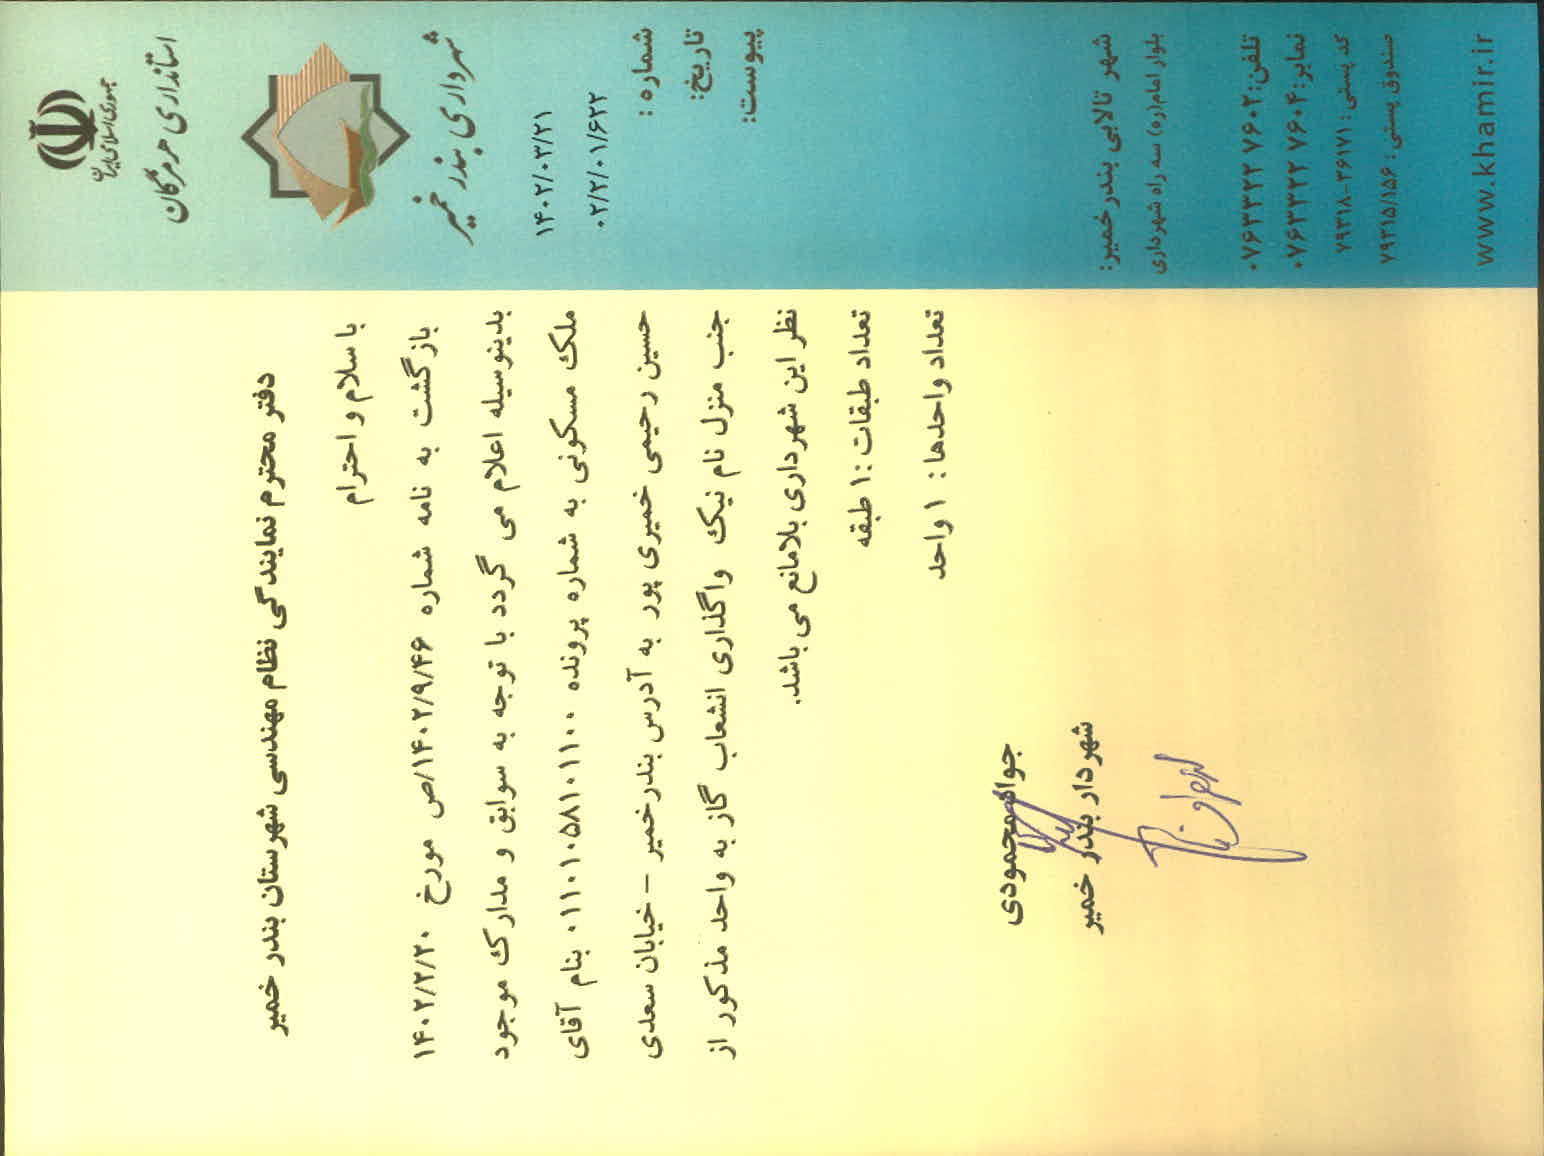 جمهوری اسلامی ایران
استانداری هرمزگان
شهرداری بندر خمیر
۱۴۰۲/۰۳/۲۱
۰۲/۲/۰۱/۶۲۲
شماره :
تاریخ:
پیوست:
دفتر محترم نمایندگی نظام مهندسی شهرستان بندر خمیر
با سلام و احترام
بازگشت به نامه شماره ۱۴۰۲/۹/۴۶/ص مورخ ۱۴۰۲/۲/۲۰
بدینوسیله اعلام می گردد با توجه به سوابق و مدارک موجود
ملک مسکونی به شماره پرونده ۰۱۱۰۱۰۵۸۱۰۱۱۰۰ بنام آقای
حسین رحیمی خمیری پور به آدرس بندرخمیر – خیابان سعدی
جنب منزل نام نیک واگذاری انشعاب گاز به واحد مذکور از
نظر این شهرداری بلامانع می باشد.
تعداد طبقات :۱ طبقه
تعداد واحدها : ۱ واحد
جواد محمودی
شهردار بندر خمیر
شهر تالابی بندرخمیر:
بلوار امام(ره) سه راه شهرداری
تلفن: ۰۷۶۳۳۲۲ ۷۶۰۲
نمابر: ۰۷۶۳۳۲۲ ۷۶۰۴
کد پستی : ۷۹۳۱۸-۳۶۱۷۱
صندوق پستی : ۷۹۳۱۵/۱۵۶
www.khamir.ir